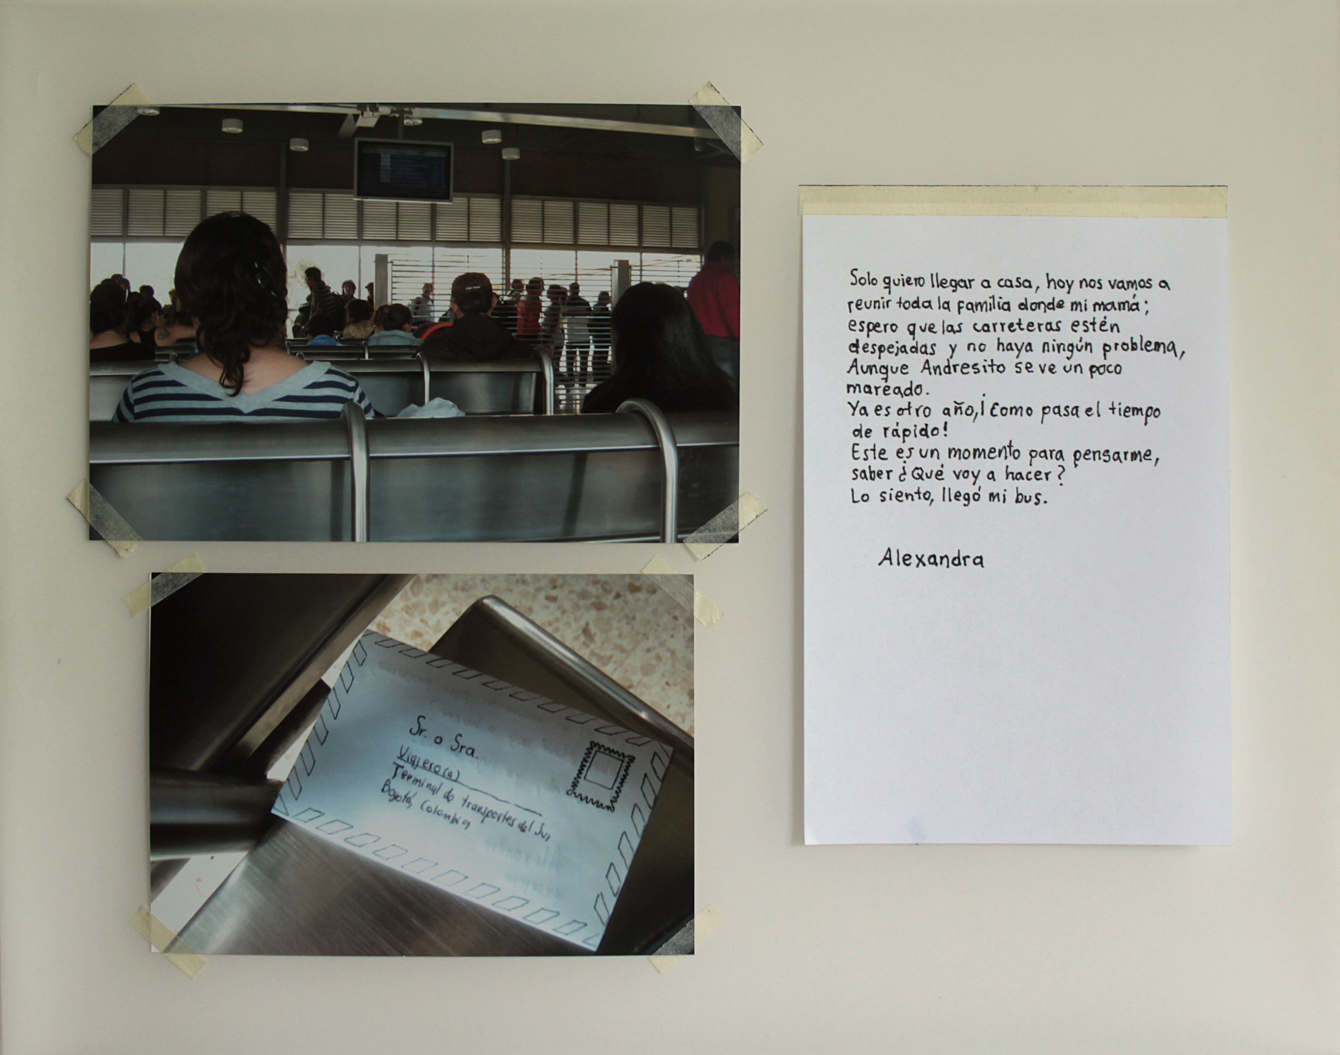 Solo quiero llegar a casa, hoy nos vamos a
reunir toda la familia donde mi mamá;
espero que las carreteras estén
despejadas y no haya ningún problema,
Aunque Andresito se ve un poco
mareado.
Ya es otro año,¡Como pasa el tiempo
de rápido!
Este es un momento para pensarme,
saber ¿Qué voy a hacer?
Lo siento, llegó mi bus.
Alexandra
Sr. o Sra.
Viajero(a)
Terminal de transportes del Sur,
Bogotá, Colombia